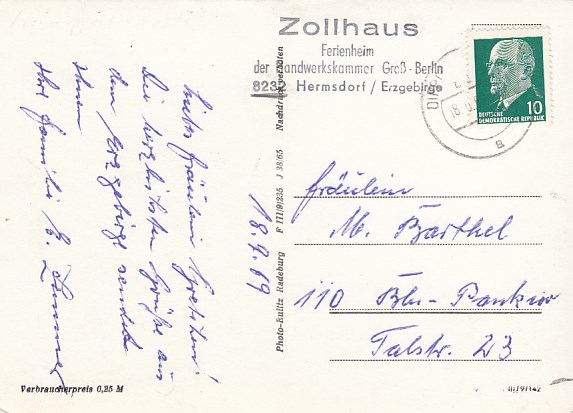 Zollhaus
Ferienheim
der Handwerkskammer Groß-Berlin
8231 Hermsdorf / Erzgebirge
10
DEUTSCHE
DEMOKRATISCHE REPUBLIK
a
Liebes Fräulein
Die herzlichsten Grüße aus
dem Erzgebirge sendet
Ihnen
Ihre Familie E. Zimmer
18.9.69
Nachdruck verboten
F III/9/235 J 38/65
Photo-Kulitz Radeburg
Fräulein
M. Barthel
110 Bln-Pankow
Talstr. 23
Verbraucherpreis 0,25 M
III/9/142